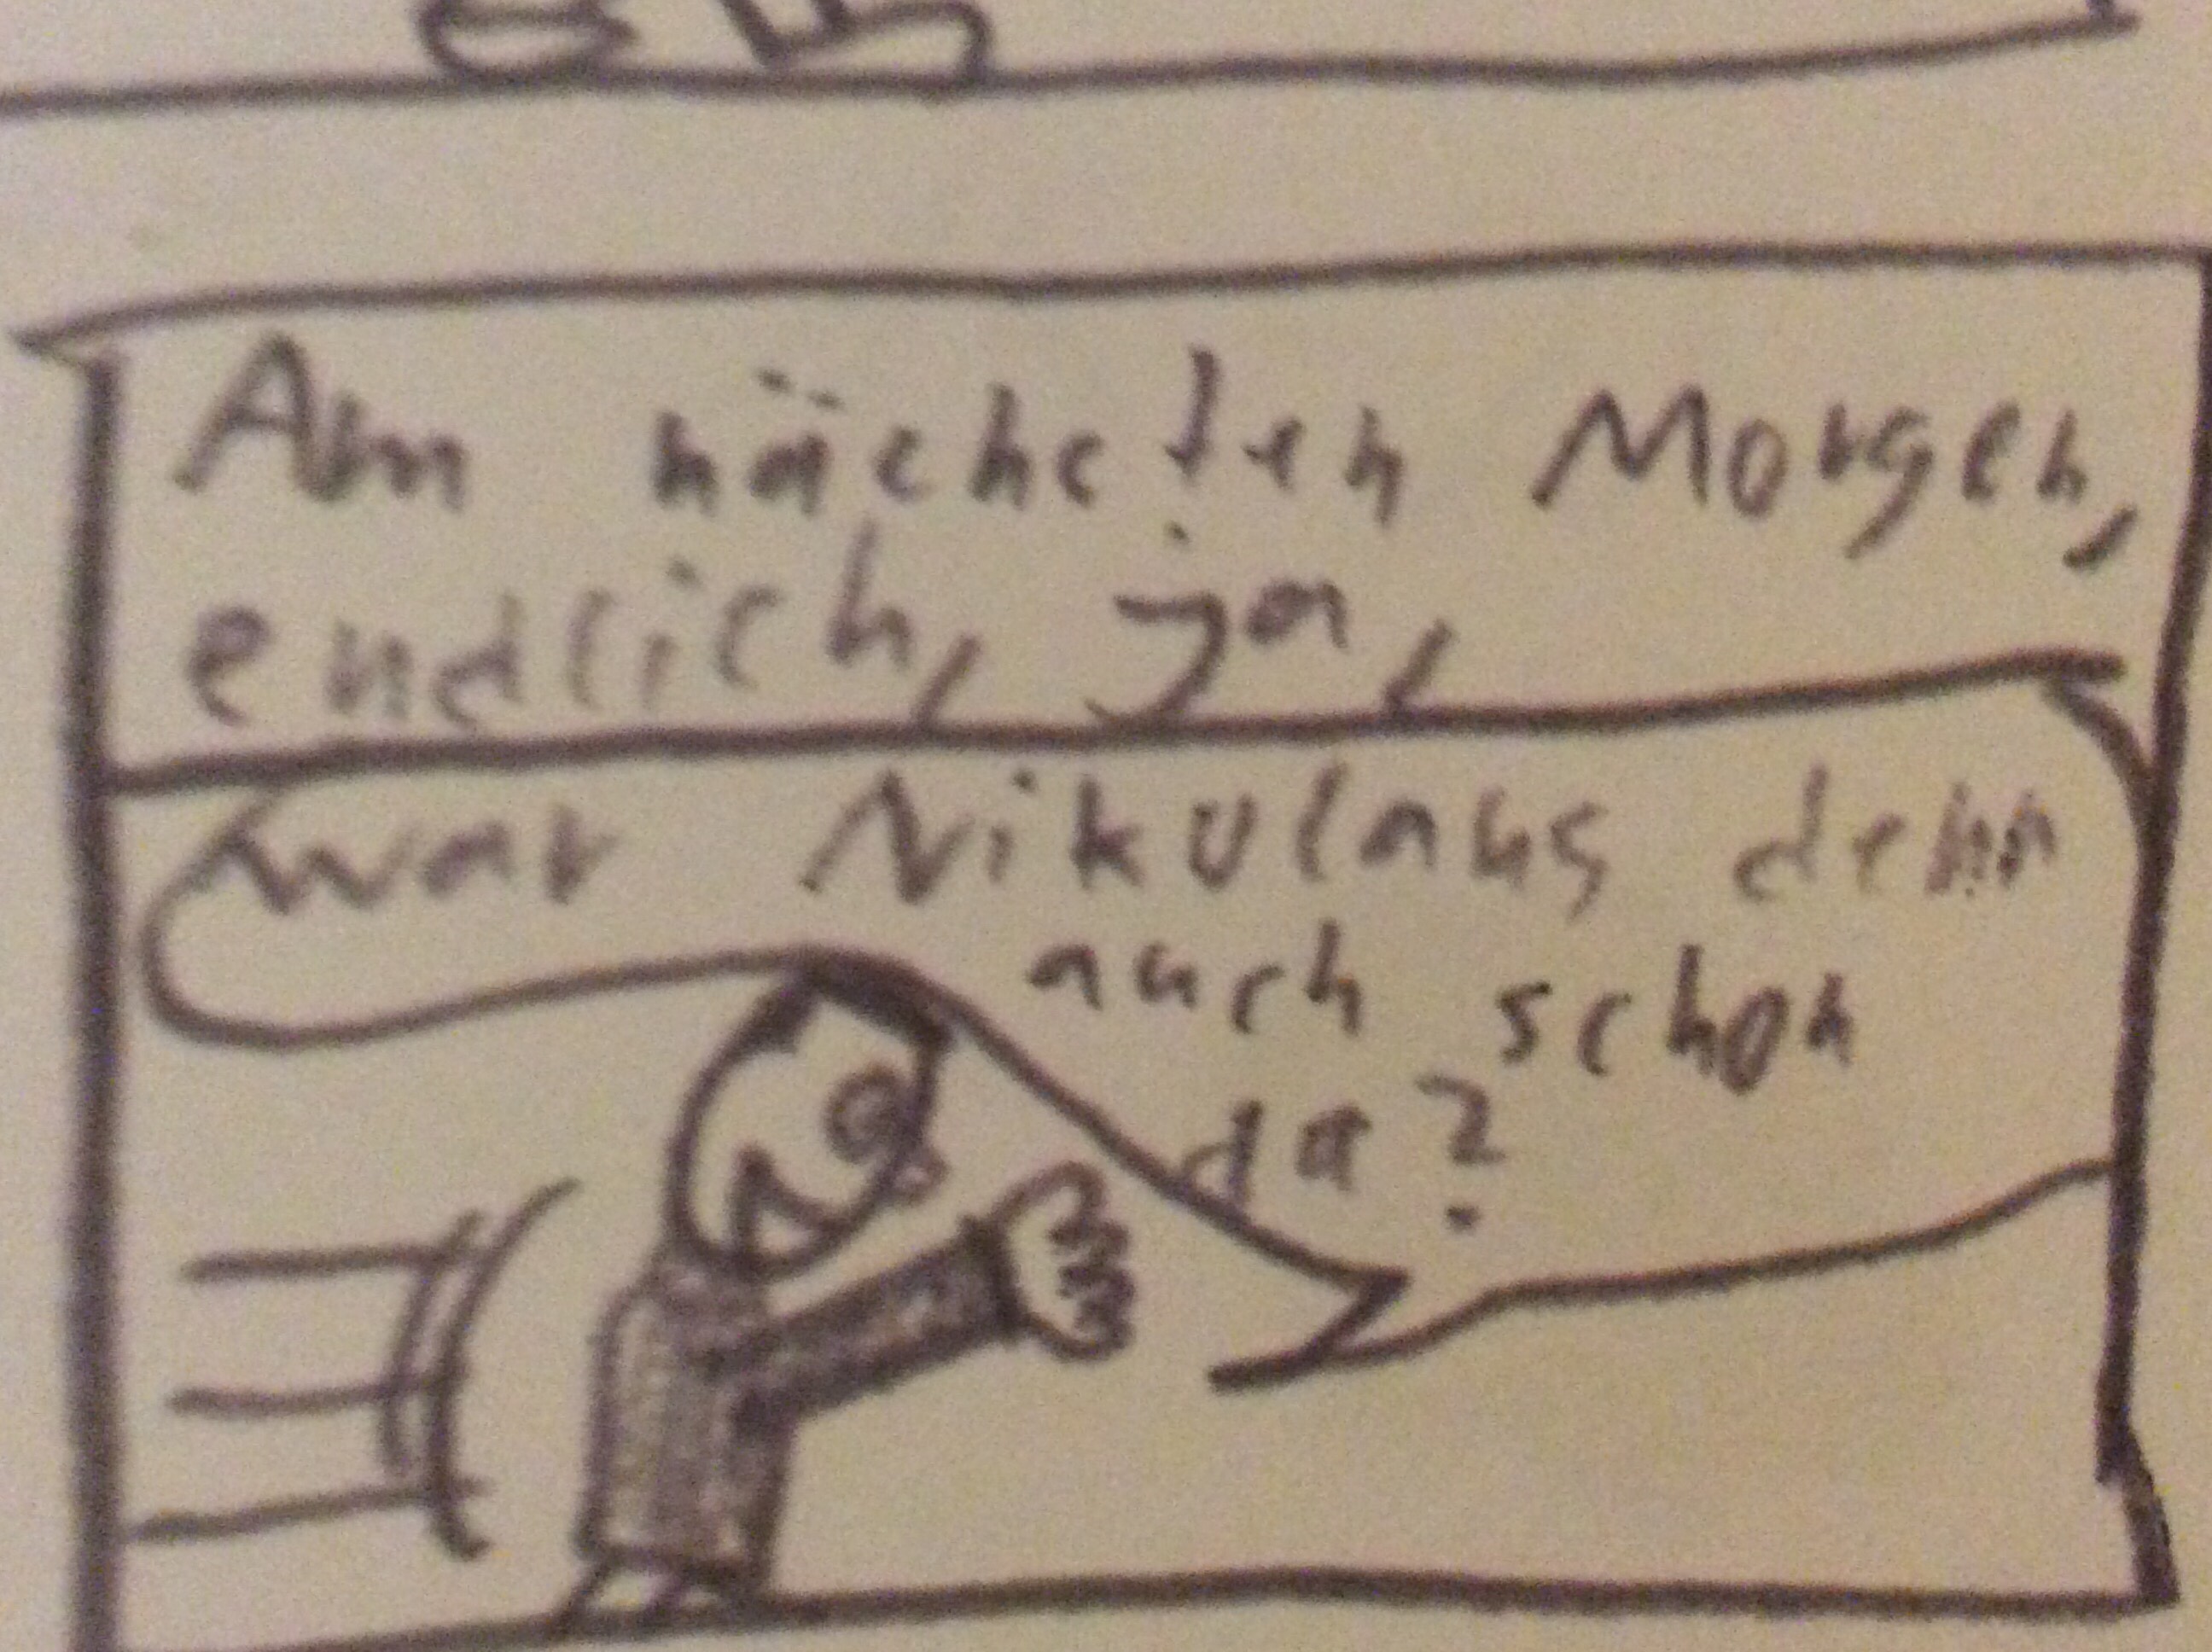 Am nächsten Morgen,
endlich, ja,
war Nikolaus denn
auch schon
da?